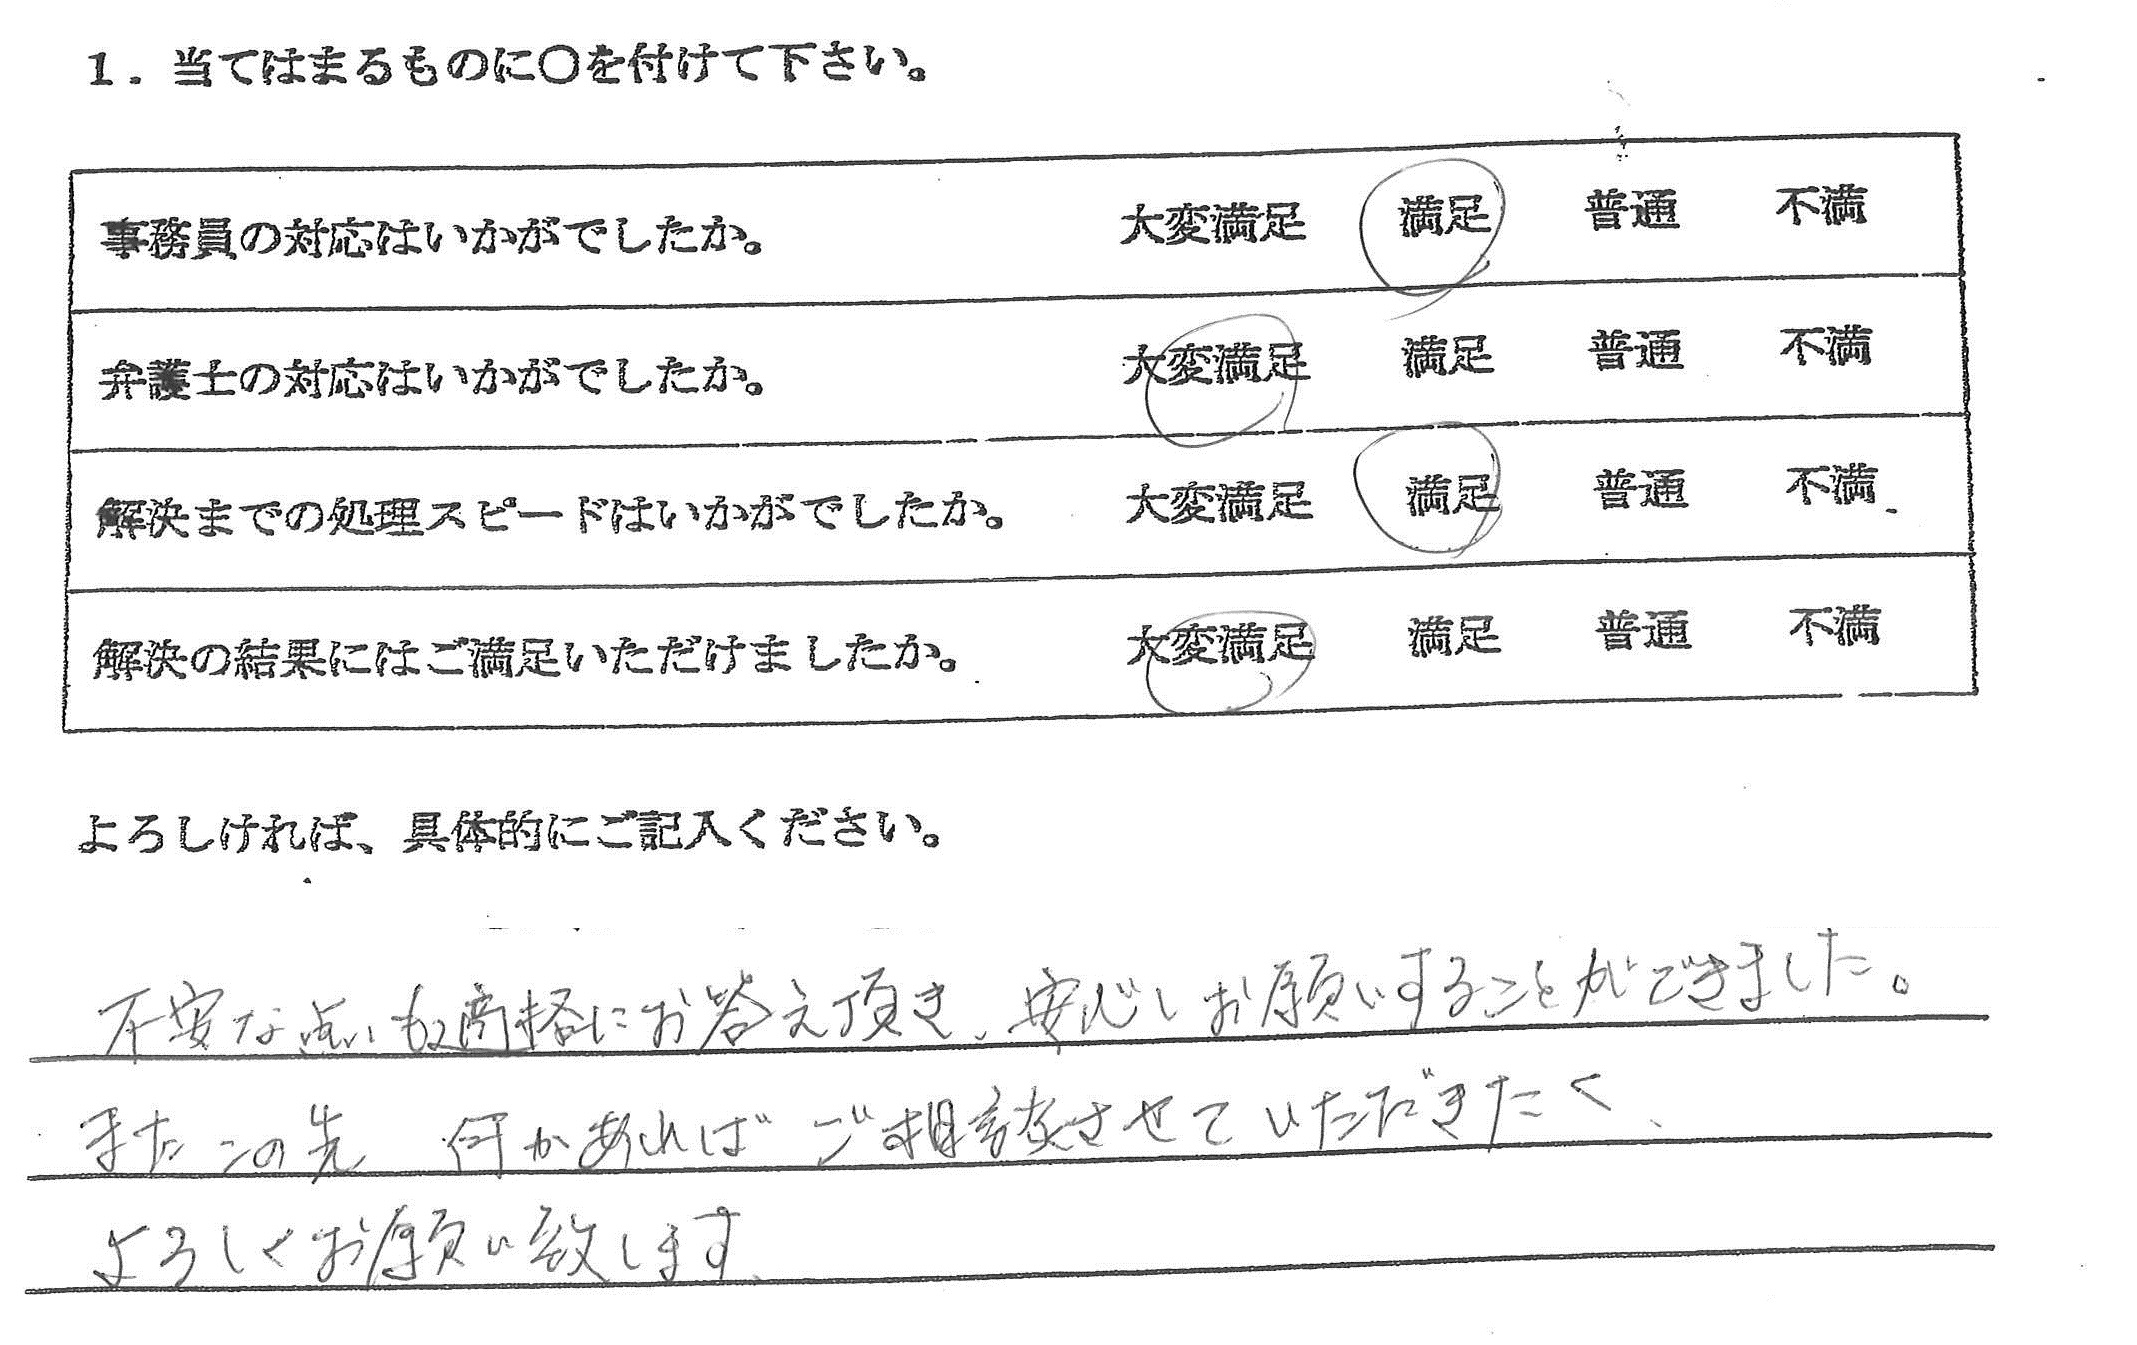 1. 当てはまるものに〇を付けて下さい。
事務員の対応はいかがでしたか。 大変満足 満足 普通 不満
弁護士の対応はいかがでしたか。 大変満足 満足 普通 不満
解決までの処理スピードはいかがでしたか。 大変満足 満足 普通 不満
解決の結果にはご満足いただけましたか。 大変満足 満足 普通 不満
よろしければ、具体的にご記入ください。
不安な点にも にお答え頂き、安心しお願いすることができました。
またこの先 何かあればご相談させていただきたく、
よろしくお願い致します。